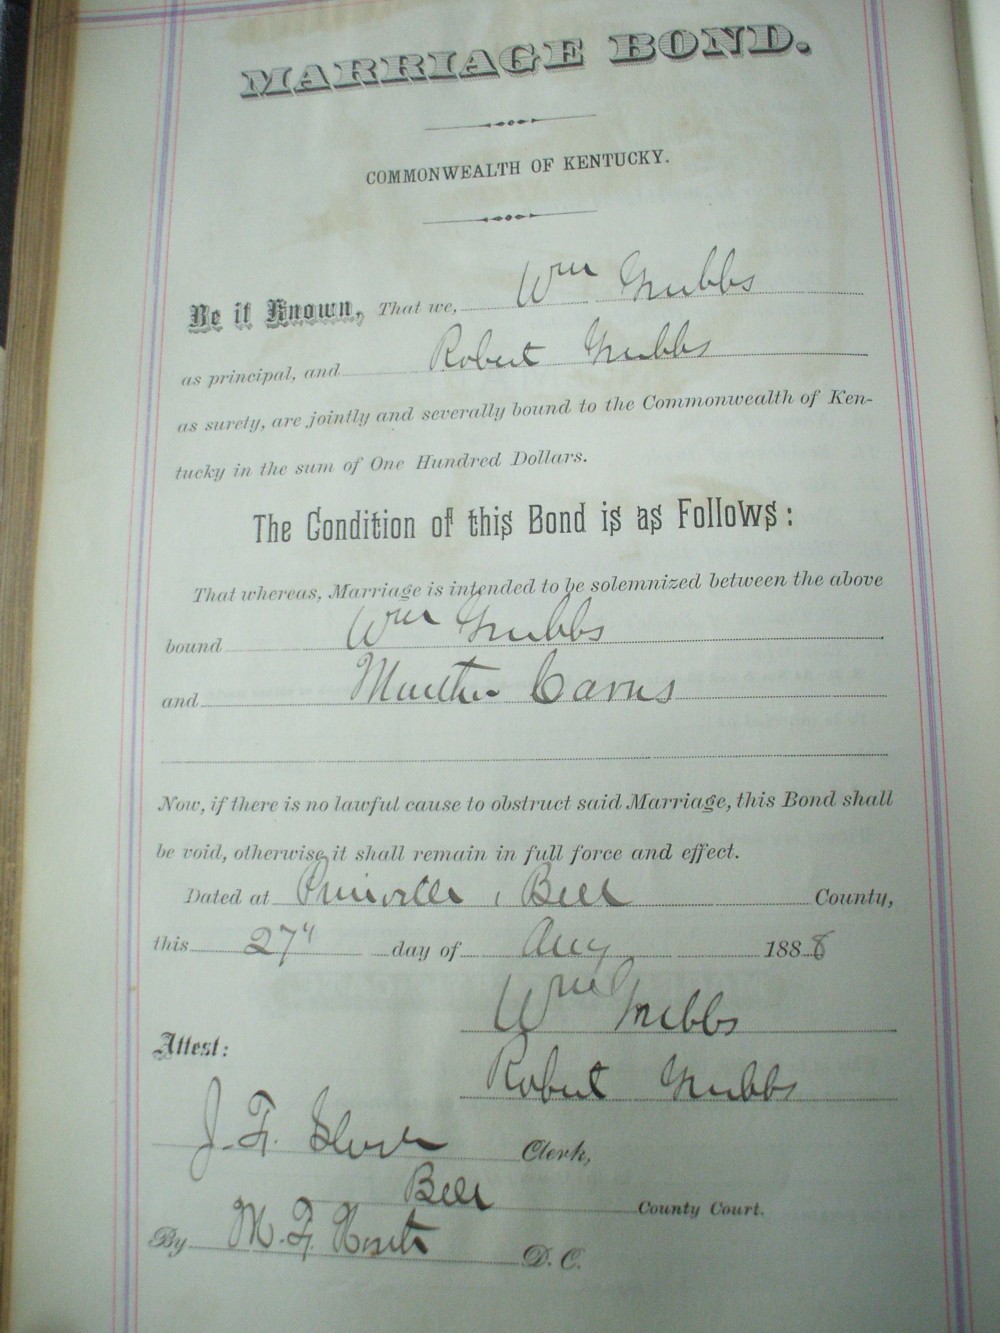 MARRIAGE BOND.
COMMONWEALTH OF KENTUCKY.
Be it Known, That we, Wm Grubbs
as principal, and Robert Grubbs
as surety, are jointly and severally bound to the Commonwealth of Ken-
tucky in the sum of One Hundred Dollars.
The Condition of this Bond is as Follows:
That whereas, Marriage is intended to be solemnized between the above
bound Wm Grubbs
and Martha Carns
Now, if there is no lawful cause to obstruct said Marriage, this Bond shall
be void, otherwise it shall remain in full force and effect.
Dated at Pineville, Bell County,
this 27" day of Aug 1888
Wm Grubbs
Attest:
Robert Grubbs
J. F. Clerk,
Bell County Court.
By M. F. D. C.